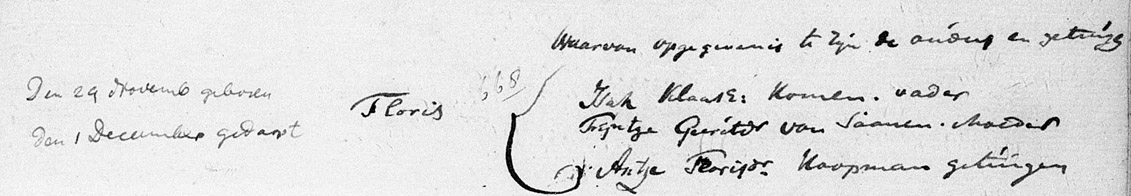 Waarvan opgegeven is te zijn de ouders en getuige
Den 29 Novemb geboren
den 1 December gedoopt
Floris
668
Isak Klaasz: Komen. vader
Trijntje Gerritdr van Saanen. Moeder
Antje Florisdr Koopman getuigen